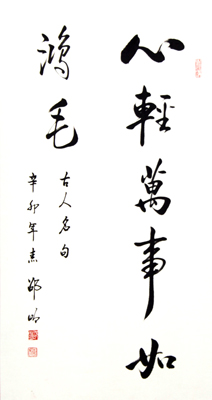 心輕萬事如
鴻毛
古人名句
辛卯年